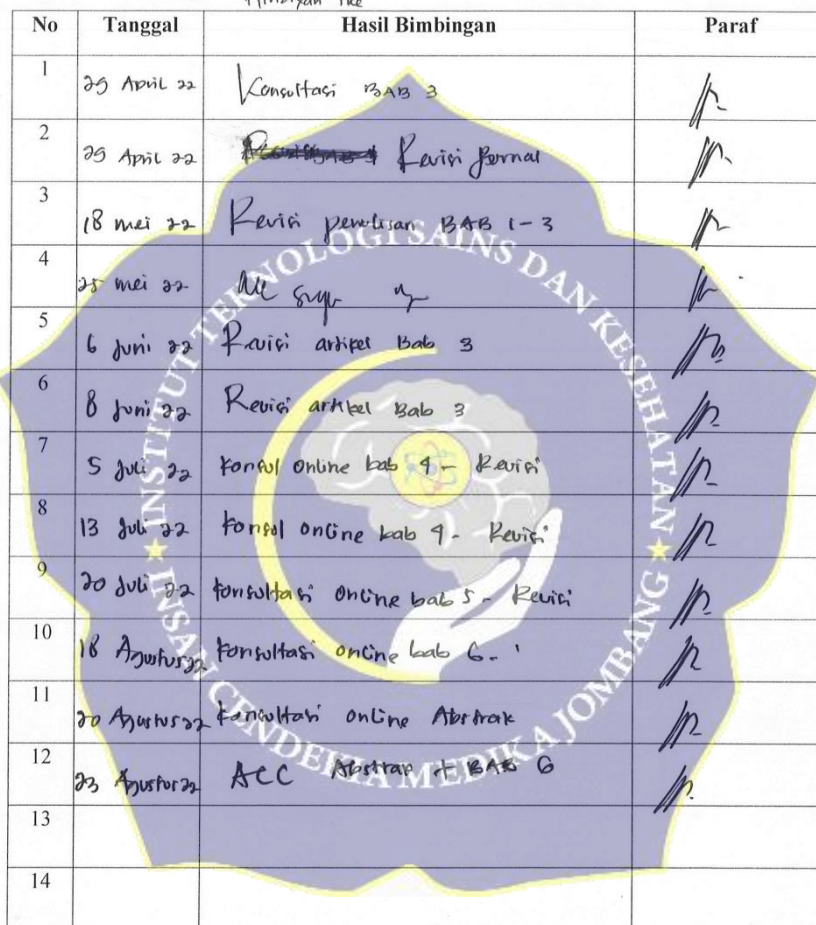 No Tanggal Hasil Bimbingan Paraf
1 29 April 22 Konsultasi BAB 3
2 29 April 22 Revisi Jurnal
3 18 mei 22 Revisi penulisan BAB 1-3
4 25 mei 22
5 6 Juni 22 Revisi artikel Bab 3
6 8 Juni 22 Revisi artikel Bab 3
7 5 Juli 22 Konsul online bab 4 - Revisi
8 13 Juli 22 Konsul online bab 4 - Revisi
9 20 Juli 22 Konsultasi online bab 5 - Revisi
10 18 Agustus 22 Konsultasi online bab 6 -
11 20 Agustus 22 Konsultasi online Abstrak
12 23 Agustus 22 ACC Abstrak + BAB 6
13
14
INSTITUT TEKNOLOGI SAINS DAN KESEHATAN
INSAN CENDEKIA MEDIKA JOMBANG